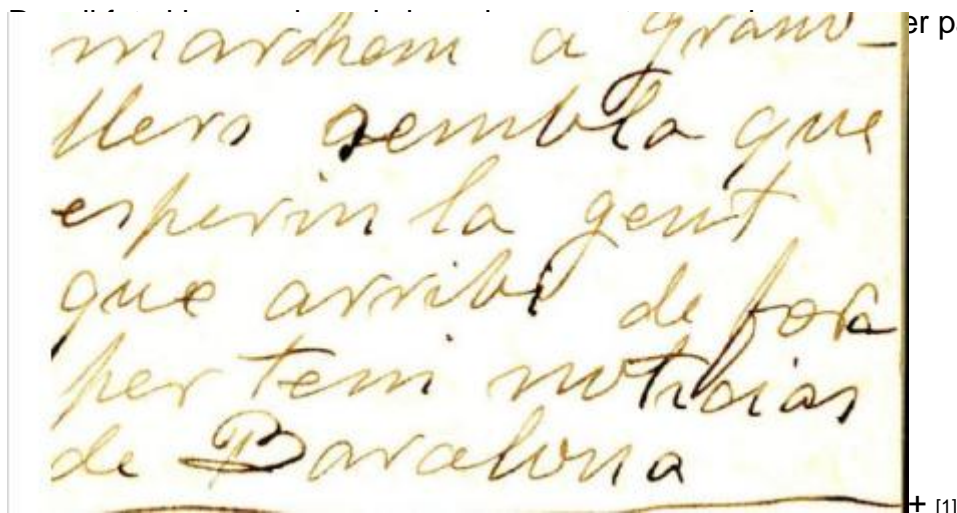 er p
marchem a grano-
llers sembla que
esperin la gent
que arribi de fora
per teni noticias
de Barcelona
+ [1]